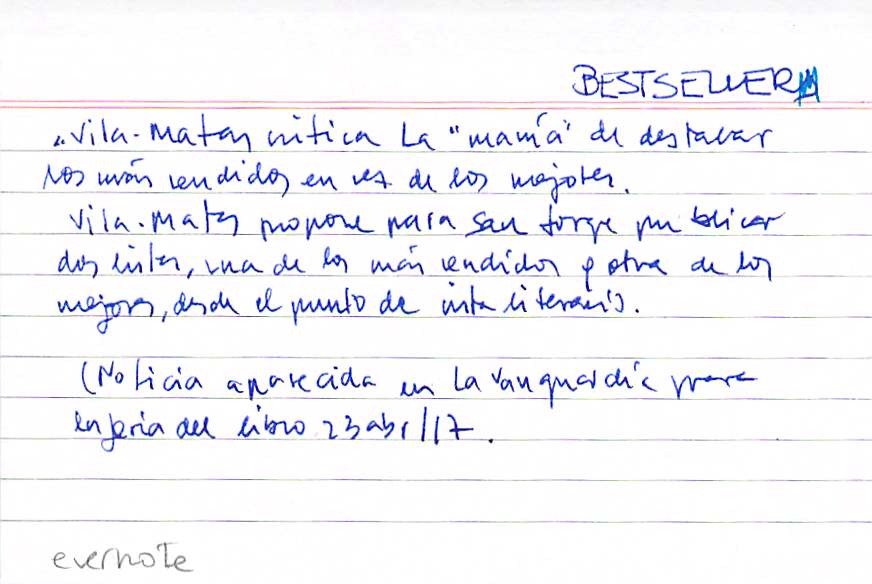 BESTSELLER
"Vila-Matas critica la "manía" de destacar
los más vendidos en vez de los mejores.
Vila-Matas propone para San Jorge publicar
dos listas, una de los más vendidos y otra de los
mejores, desde el punto de vista literario.
(Noticia aparecida en La Vanguardia para
la feria del libro 23 abr/17.
evernote